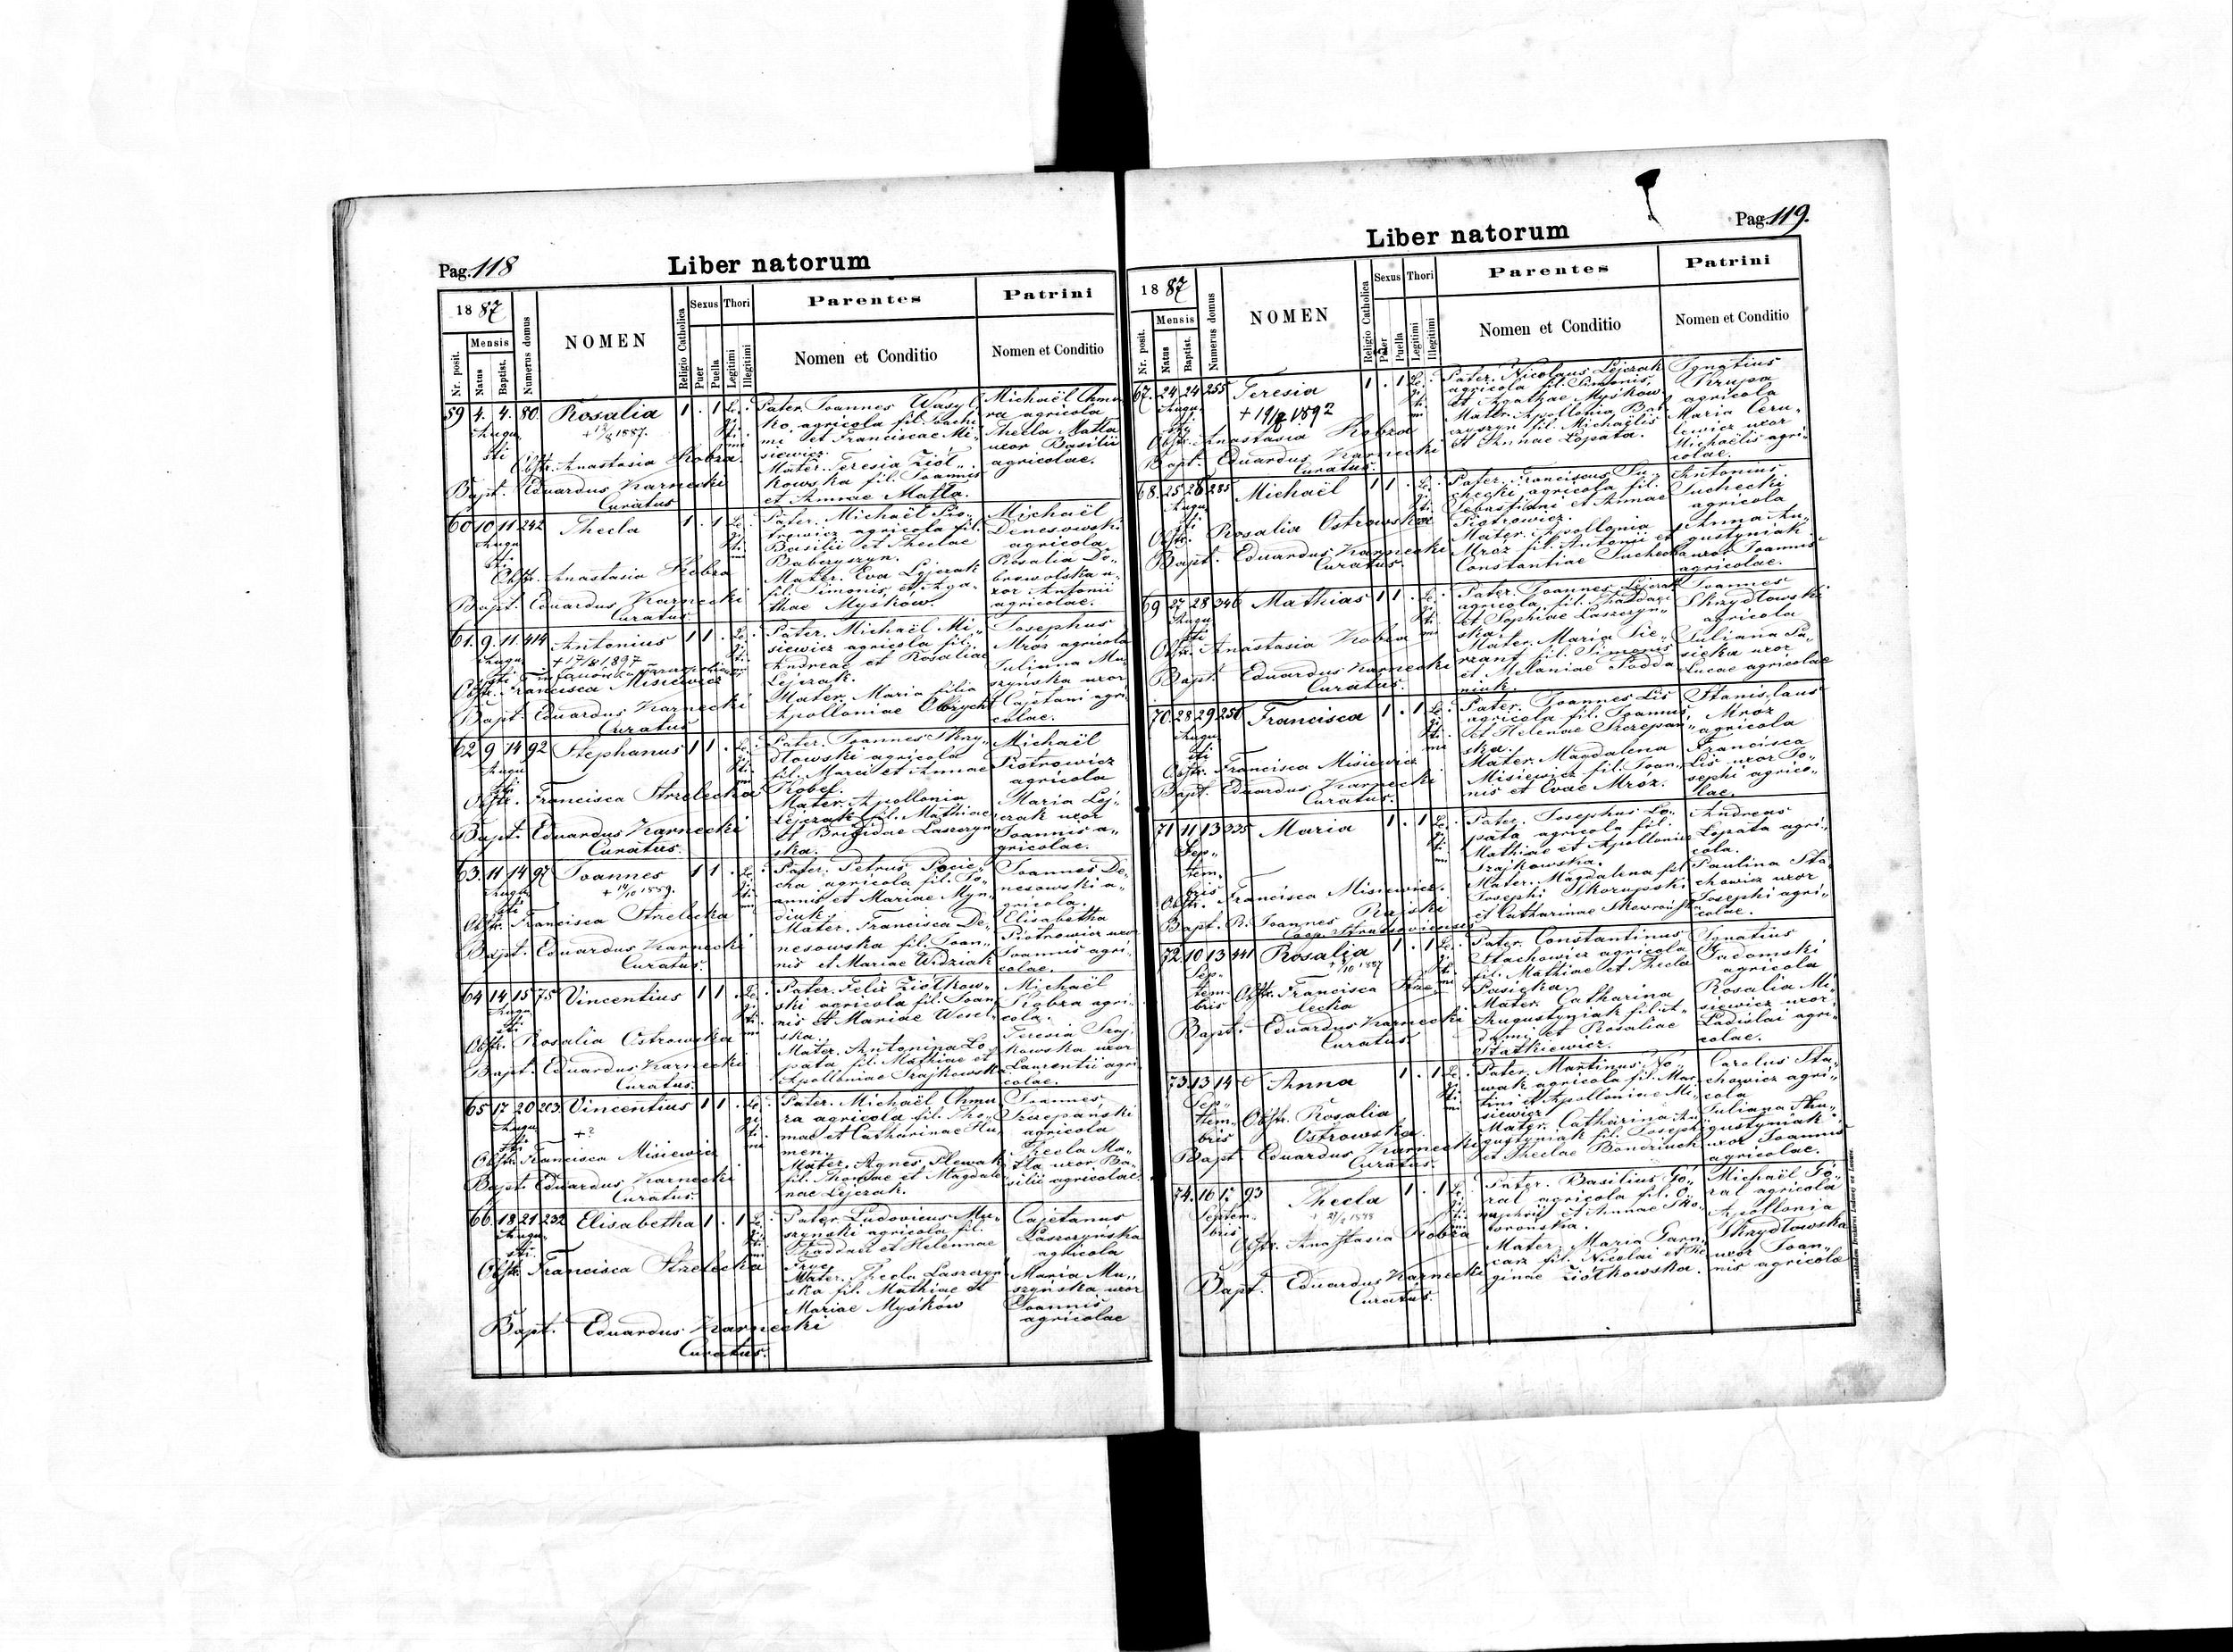 Pag. 118
Liber natorum
1887
Nr. posit.
Mensis
Natus
Baptist.
Numerus domus
NOMEN
Religio Catholica
Sexus
Puer
Puella
Thori
Legitimi
Illegitimi
Parentes
Nomen et Conditio
Patrini
Nomen et Conditio
59 4. 4. 80. Rosalia 1 . 1 Le-
Augu-
sti
gi-
ti-
mi
Obstr. Anastasia Kobza.
Bapt. Eduardus Karnecki
Curatus
Pater. Joannes Wasyl-
ko, agricola fil. Joachi-
mi et Franciscae Mi-
siewicz.
Mater. Teresia Ziół-
kowska fil. Joannis
et Annae Matla.
Michaël Chmu-
ra agricola
Thecla Matla
uxor Basilii
agricolae.
60 10 11 242 Thecla 1 . 1 Le-
Augu-
sti
gi-
ti-
mi
Obstr. Anastasia Kobza
Bapt. Eduardus Karnecki
Curatus.
Pater. Michaël Pio-
trowicz agricola fil.
Basilii et Theclae
Baberyszyn.
Mater. Eva Lejczak
fil. Simonis, et Aga-
thae Myśków.
Michaël
Denesowski
agricola
Rosalia Do-
browolska u-
xor Antonii
agricolae.
61. 9. 11. 414 Antonius 1 1 . Le-
Augu-
sti
+ 17/8 1897
gi-
ti-
mi
Obstr. Francisca Misiewicz
Bapt. Eduardus Karnecki
Curatus
Pater. Michaël Mi-
siewicz agricola fil.
Andreae et Rosaliae
Lejczak.
Mater. Maria filia
Apolloniae Obzycht
Josephus
Mróz agricola
Julianna Mu-
szyńska uxor
Cajetani agri-
colae.
62 9 14 92 Stephanus 1 1 . Le-
Augu-
sti
gi-
ti-
mi
Obstr. Francisca Strzelecka
Bapt. Eduardus Karnecki
Curatus.
Pater. Joannes Skrzy-
dłowski agricola
fil. Marci et Annae
Kobel.
Mater. Apollonia
Lejczak fil. Mathiae
et Brigidae Laszczyn-
ska.
Michaël
Piotrowicz
agricola
Maria Lej-
czak uxor
Joannis a-
gricolae.
63. 11 14 97 Joannes 1 1 . Le-
Augu-
sti
gi-
ti-
mi
Obstr. Francisca Strzelecka
Bapt. Eduardus Karnecki
Curatus.
Pater. Petrus Pocie-
cha agricola fil. Jo-
annis et Mariae Myn-
diuk.
Mater. Francisca De-
nesowska fil. Joan-
nis et Mariae Widziak
Joannes De-
nesowski a-
gricola.
Elisabetha
Piotrowicz uxor
Joannis agri-
colae.
64 14 15 75 Vincentius 1 1 . Le-
Augu-
sti
gi-
ti-
mi
Obstr. Rosalia Ostrowska
Bapt. Eduardus Karnecki
Curatus.
Pater. Felix Ziółkow-
ski agricola fil. Joan-
nis et Mariae Wesel-
ska.
Mater. Antonina Ło-
pata fil. Mathiae et
Apolloniae Szajkowska
Michaël
Kobza agri-
cola.
Teresia Szaj-
kowska uxor
Laurentii agri-
colae.
65 17 20 203 Vincentius 1 1 . Le-
Augu-
sti
+?
gi-
ti-
mi
Obstr. Francisca Misiewicz
Bapt. Eduardus Karnecki
Curatus
Pater. Michaël Chmu-
ra agricola fil. Tho-
mae et Catharinae Hu-
men.
Mater. Agnes Slewak
fil. Thomae et Magdale-
nae Lejczak.
Joannes
Szczepanski
agricola
Thecla Ma-
tla uxor Ba-
silii agricolae.
66. 18 21 232 Elisabetha 1 . 1 Le-
Augu-
sti.
gi-
ti-
mi
Obstr. Francisca Strzelecka
Bapt. Eduardus Karnecki
Curatus.
Pater. Ludovicus Mu-
szynski agricola fil.
Thaddaei et Helennae
Fryc
Mater. Thecla Laszczyn-
ska fil. Mathiae et
Mariae Myśków
Cajetanus
Laszczyńska
agricola
Maria Mu-
szyńska uxor
Joannis
agricolae
Liber natorum
Pag. 119.
1887
Nr. posit.
Mensis
Natus
Baptist.
Numerus domus
NOMEN
Religio Catholica
Sexus
Puer
Puella
Thori
Legitimi
Illegitimi
Parentes
Nomen et Conditio
Patrini
Nomen et Conditio
67. 24 24 255 Teresia 1 . 1 Le-
Augu-
sti
+ 19/8 1892
gi-
ti-
mi
Obstr. Anastasia Kobza
Bapt. Eduardus Karnecki
Curatus.
Pater. Nicolaus Lejczak
agricola fil. Simonis,
et Agathae Myśków
Mater. Apollonia Bab-
czyszyn fil. Michaëlis
et Annae Łopata.
Ignatius
Krupa
agricola
Maria Ceru-
lewicz uxor
Michaëlis agri-
colae.
68. 25 28 285 Michaël 1 1 . Le-
Augu-
sti
gi-
ti-
mi
Obstr. Rosalia Ostrowska
Bapt. Eduardus Karnecki
Curatus.
Pater. Franciscus Su-
checki agricola fil.
Sebastiani et Annae
Piotrowicz.
Mater. Apollonia
Mróz fil. Antonii et
Constantiae Suchecka
Antonius
Suchecki
agricola
Anna Au-
gustyniak
uxor Joannis
agricolae.
69 27 28 346 Mathias 1 1 . Le-
Augu-
sti
gi-
ti-
mi
Obstr. Anastasia Kobza
Bapt. Eduardus Karnecki
Curatus.
Pater. Joannes Lejczak
agricola fil. Thaddaei
et Sophiae Laszczyn-
ska.
Mater. Maria Pie-
rzant fil. Simonis
et Melaniae Sadda-
niuk.
Joannes
Skrzydłowski
agricola
Juliana Pa-
siecka uxor
Lucae agricolae
70. 28 29 250 Francisca 1 . 1 Le-
Augu-
sti
gi-
ti-
mi
Obstr. Francisca Misiewicz
Bapt. Eduardus Karnecki
Curatus.
Pater. Joannes Lis
agricola fil. Joannis,
et Helenae Szczepan-
ska.
Mater. Magdalena
Misiewicz fil. Joan-
nis et Evae Mróz.
Stanislaus
Mróz
agricola
Francisca
Lis uxor Jo-
sephi agrico-
lae.
71 11 13 325 Maria 1 . 1 Le-
Sep-
tem-
bris
gi-
ti-
mi
Obstr. Francisca Misiewicz.
Bapt. R. Joannes Rajski
Pater. Josephus Ło-
pata agricola fil.
Mathiae et Apolloniae
Szajkowska.
Mater. Magdalena fil
Josephi Skorupski
et Catharinae Skowrońska
Andreas
Łopata agri-
cola.
Paulina Sta-
chowicz uxor
Josephi agri-
colae.
72. 10 13 441 Rosalia 1 . 1 Le-
Sep-
tem-
bris
gi-
ti-
mi
Obstr. Francisca Strze-
lecka
Bapt. Eduardus Karnecki
Curatus
Pater. Constantinus
Stachowicz agricola
fil. Mathiae et Thecla
Pasieka.
Mater. Catharina
Augustyniak fil. A-
dami et Rosaliae
Statkiewicz.
Ignatius
Sadomski
agricola
Rosalia Mi-
siewicz uxor
Ladislai agri-
colae.
73. 13 14 Anna 1 . 1 Le-
Sep-
tem-
bris
gi-
ti-
mi
Obstr. Rosalia
Ostrowska.
Bapt. Eduardus Karnecki
Curatus.
Pater. Martinus No-
wak agricola fil. Mar-
tini et Apolloniae Mi-
siewicz
Mater. Catharina Au-
gustyniak fil. Josephi
et Theclae Bonciuch
Carolus Sta-
chowicz agri-
cola
Juliana Au-
gustyniak
uxor Joannis
agricolae.
74. 16 17 93 Thecla 1 . 1 Le-
Septem-
bris
gi-
ti-
mi
Obstr. Anastasia Kobza
Bapt. Eduardus Karnecki
Curatus.
Pater. Basilius Gó-
ral agricola fil. O-
nuphrii et Annae Sko-
worońska.
Mater. Maria Garn-
carz fil. Nicolai et Re-
ginae Ziółkowska.
Michaël Gó-
ral agricola
Apollonia
Skrzydłowska
uxor Joan-
nis agricolae